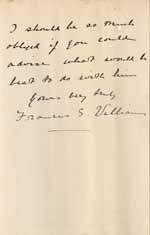 I should be so much
obliged if you could
advise what would be
best to do with him
Yours very truly
Francis E. Williams